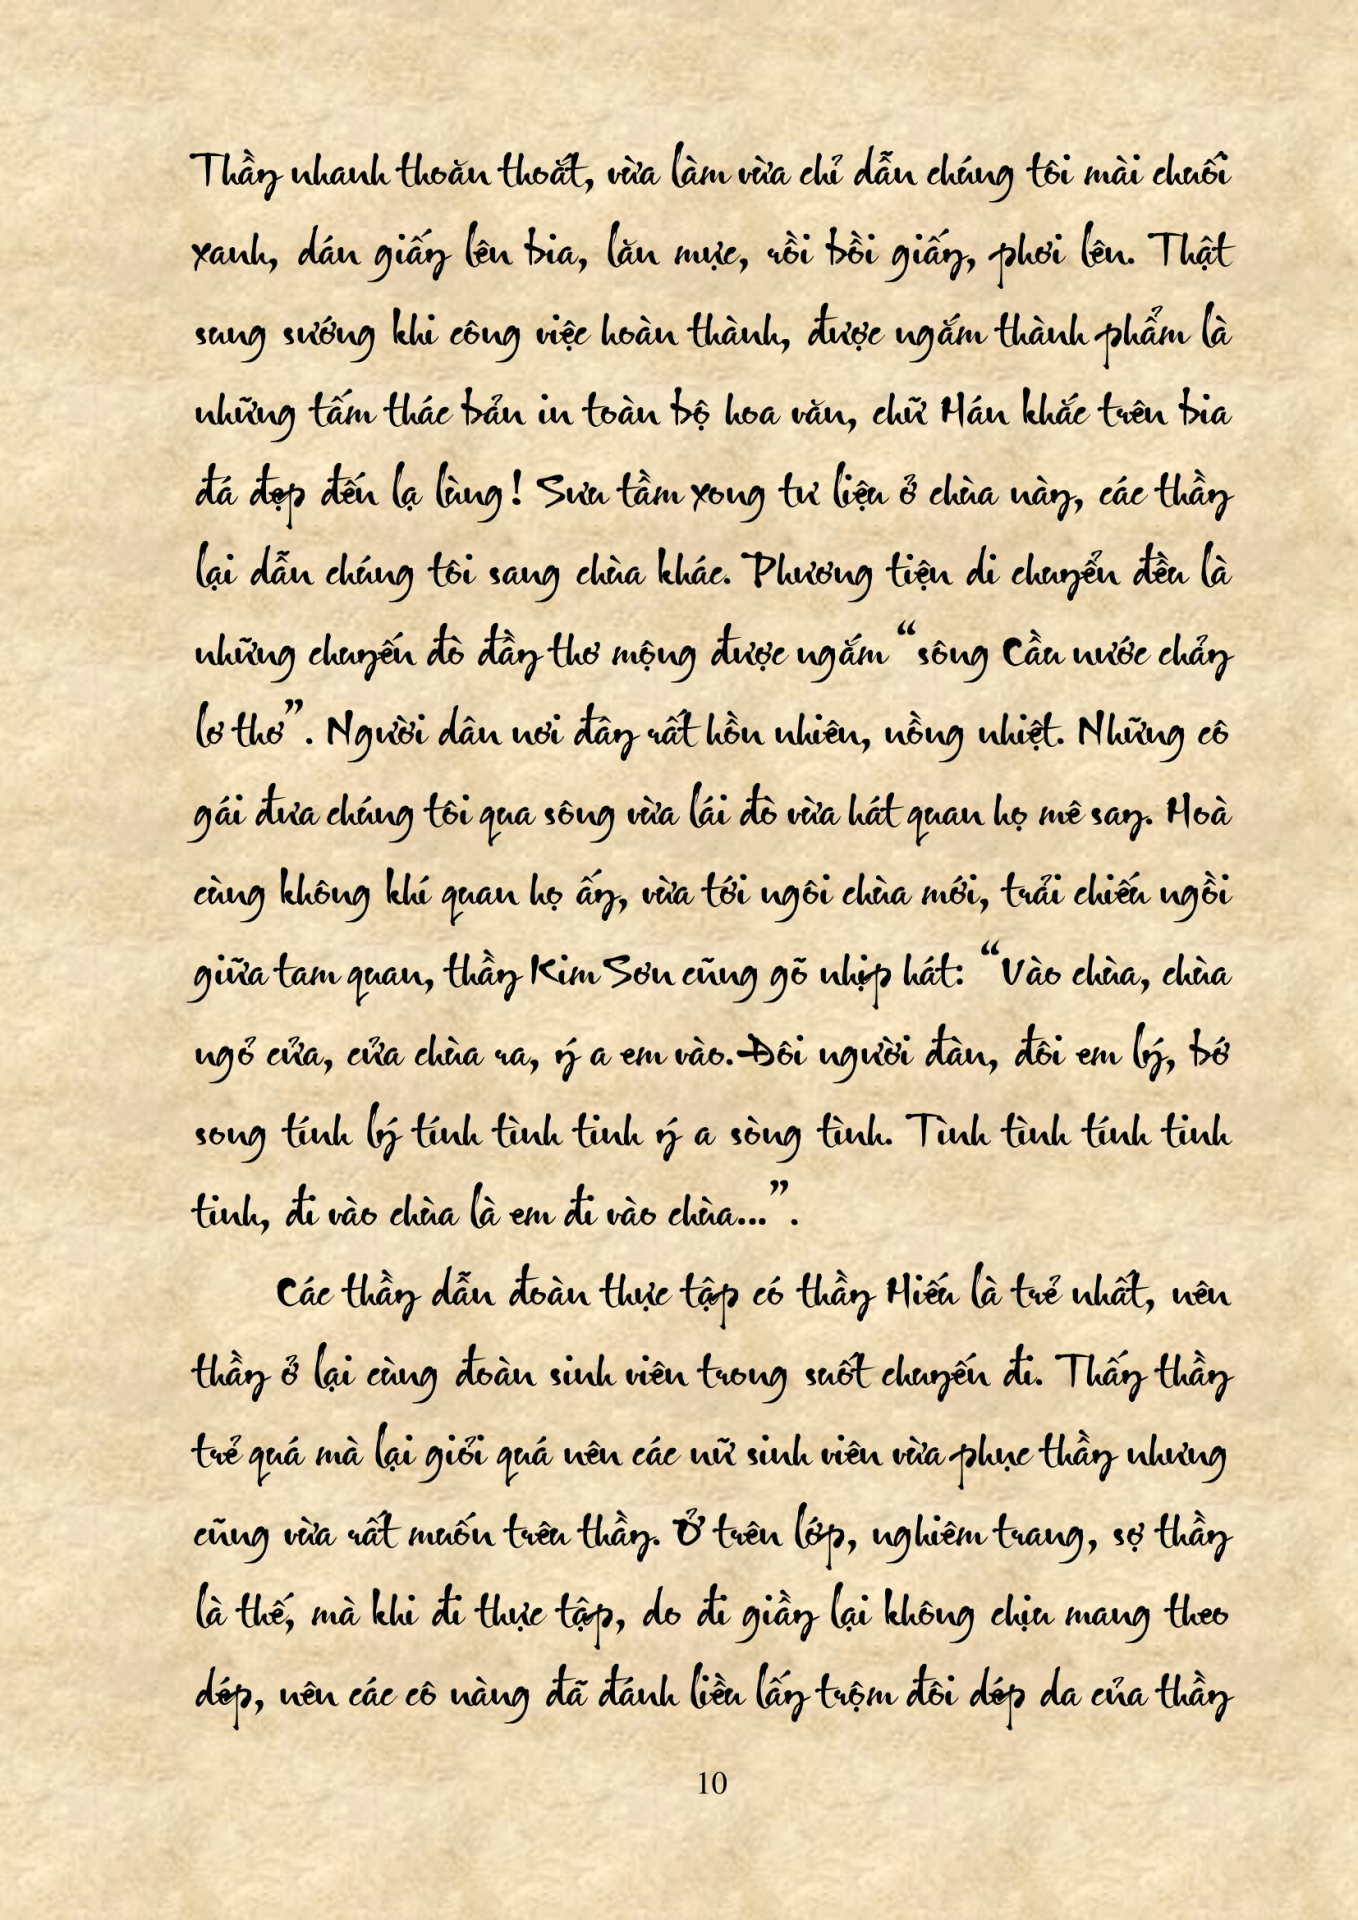 Thầy nhanh thoăn thoắt, vừa làm vừa chỉ dẫn chúng tôi mài chuối
xanh, dán giấy lên bia, lăn mực, rồi bồi giấy, phơi lên. Thật
sung sướng khi công việc hoàn thành, được ngắm thành phẩm là
những tấm thác bản in toàn bộ hoa văn, chữ Hán khắc trên bia
đá đẹp đến lạ lùng! Sưu tầm xong tư liệu ở chùa này, các thầy
lại dẫn chúng tôi sang chùa khác. Phương tiện di chuyển đều là
những chuyến đò đầy thơ mộng được ngắm “sông Cầu nước chảy
lơ thơ”. Người dân nơi đây rất hồn nhiên, nồng nhiệt. Những cô
gái đưa chúng tôi qua sông vừa lái đò vừa hát quan họ mê say. Hoà
cùng không khí quan họ ấy, vừa tới ngôi chùa mới, trải chiếu ngồi
giữa tam quan, thầy Kim Sơn cũng gõ nhịp hát: “Vào chùa, chùa
ngỏ cửa, cửa chùa ra, ý a em vào. Đôi người đàn, đôi em lý, bớ
song tính lý tính tình tinh ý a sòng tình. Tình tình tính tinh
tinh, đi vào chùa là em đi vào chùa...”.
Các thầy dẫn đoàn thực tập có thầy Hiếu là trẻ nhất, nên
thầy ở lại cùng đoàn sinh viên trong suốt chuyến đi. Thấy thầy
trẻ quá mà lại giỏi quá nên các nữ sinh viên vừa phục thầy nhưng
cũng vừa rất muốn trêu thầy. Ở trên lớp, nghiêm trang, sợ thầy
là thế, mà khi đi thực tập, do đi giầy lại không chịu mang theo
dép, nên các cô nàng đã đánh liều lấy trộm đôi dép da của thầy
10